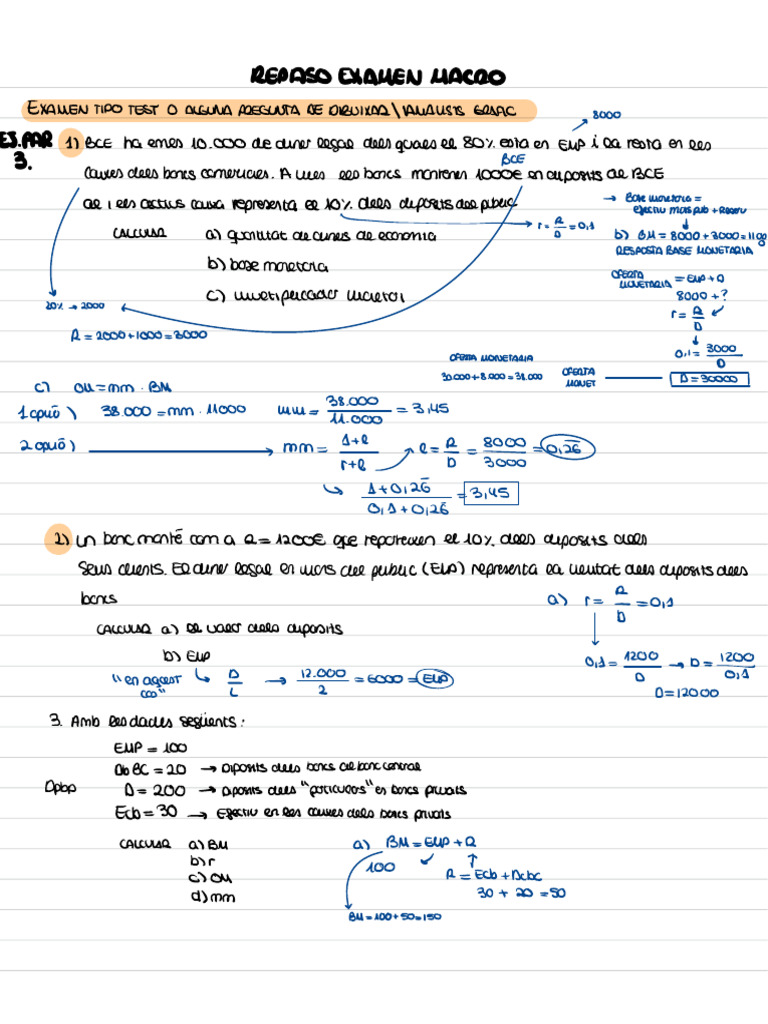 REPASO EXAMEN MACRO
EXAMEN TIPO TEST O ALGUNA PREGUNTA DE DIBUIXAR/ANALISIS GRÀFIC
8000
EJ. PAR 3.
1) BCE ha emès 10.000 de diner legal dels quals el 80% està en EMP i la resta en les
BCE
caixes dels bancs comercials. A més els bancs mantenen 1000€ en diposits de BCE
al i els actius caixa representa el 10% dels diposits del public
r = R/D = 0,1
→ Base monetaria =
efectiu mans pub + Reserv
b) BM = 8000 + 3000 = 1100
RESPOSTA BASE MONETARIA
CALCULAR a) quantitat de diners de economia
b) base monetaria
c) multiplicador monetari
OFERTA MONETARIA = EMP + D
8000 + ?
r = R/D
0,1 = 3000/D
D = 30000
20% → 2000
R = 2000 + 1000 = 3000
OFERTA MONETARIA
30.000 + 8.000 = 38.000
OFERTA MONET
c) OM = mm · BM
1 opció) 38.000 = mm · 11000 mm = 38.000/11.000 = 3,45
2 opció) → mm = 1+e/r+e e = R/D = 8000/3000 = 0,26
↳ 1+0,26/0,1+0,26 = 3,45
2) Un banc manté com a R = 1200€ que representen el 10% dels diposits dels
seus clients. El diner legal en mans del public (ELP) representa la meitat dels diposits dels
bancs
a) r = R/D = 0,1
CALCULAR a) el valor dels diposits
b) EMP
0,1 = 1200/D → D = 1200/0,1
D = 12000
"en aquest cas" ↳ D/2 → 12.000/2 = 6000 = EMP
3. Amb les dades següents:
EMP = 100
DbBC = 20 → Diposits dels bancs al banc central
Dpbp
D = 200 → Diposits dels "particulars" en bancs privats
Ecb = 30 → Efectiu en les caixes dels bancs privats
CALCULAR a) BM
b) r
c) OM
d) mm
a) BM = EMP + R
100
R = Ecb + Dcbc
30 + 20 = 50
BM = 100 + 50 = 150